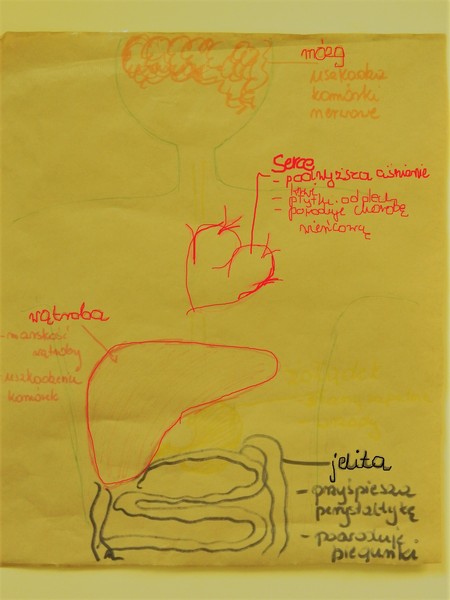 mózg
uszkadza
komórki
nerwowe
Serce
- podwyższa ciśnienie
krwi
- płytki oddech
- powoduje chorobę
wieńcową
wątroba
- marskość
wątroby
uszkodzenie
komórek
jelita
- przyśpiesza
perystaltykę
- powoduje
biegunki